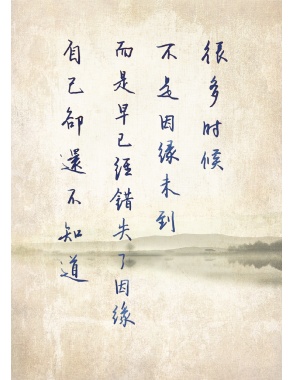 很多时候
不是因缘未到
而是早已经错失了因缘
自己卻還不知道